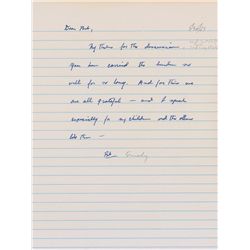 Dear Bob,
My thanks for the
You have carried the burden so
well for so long. And for this we
are all grateful — and I speak
especially for my children and the others
like them —